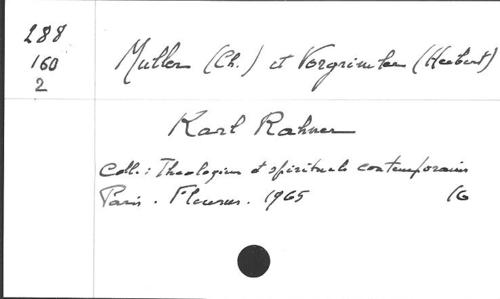 288
160
2
Muller (Ch.) et Vorgrimler (Herbert)
Karl Rahner
Coll.: Théologiens et spirituels contemporains
Paris. Fleurus. 1965 16